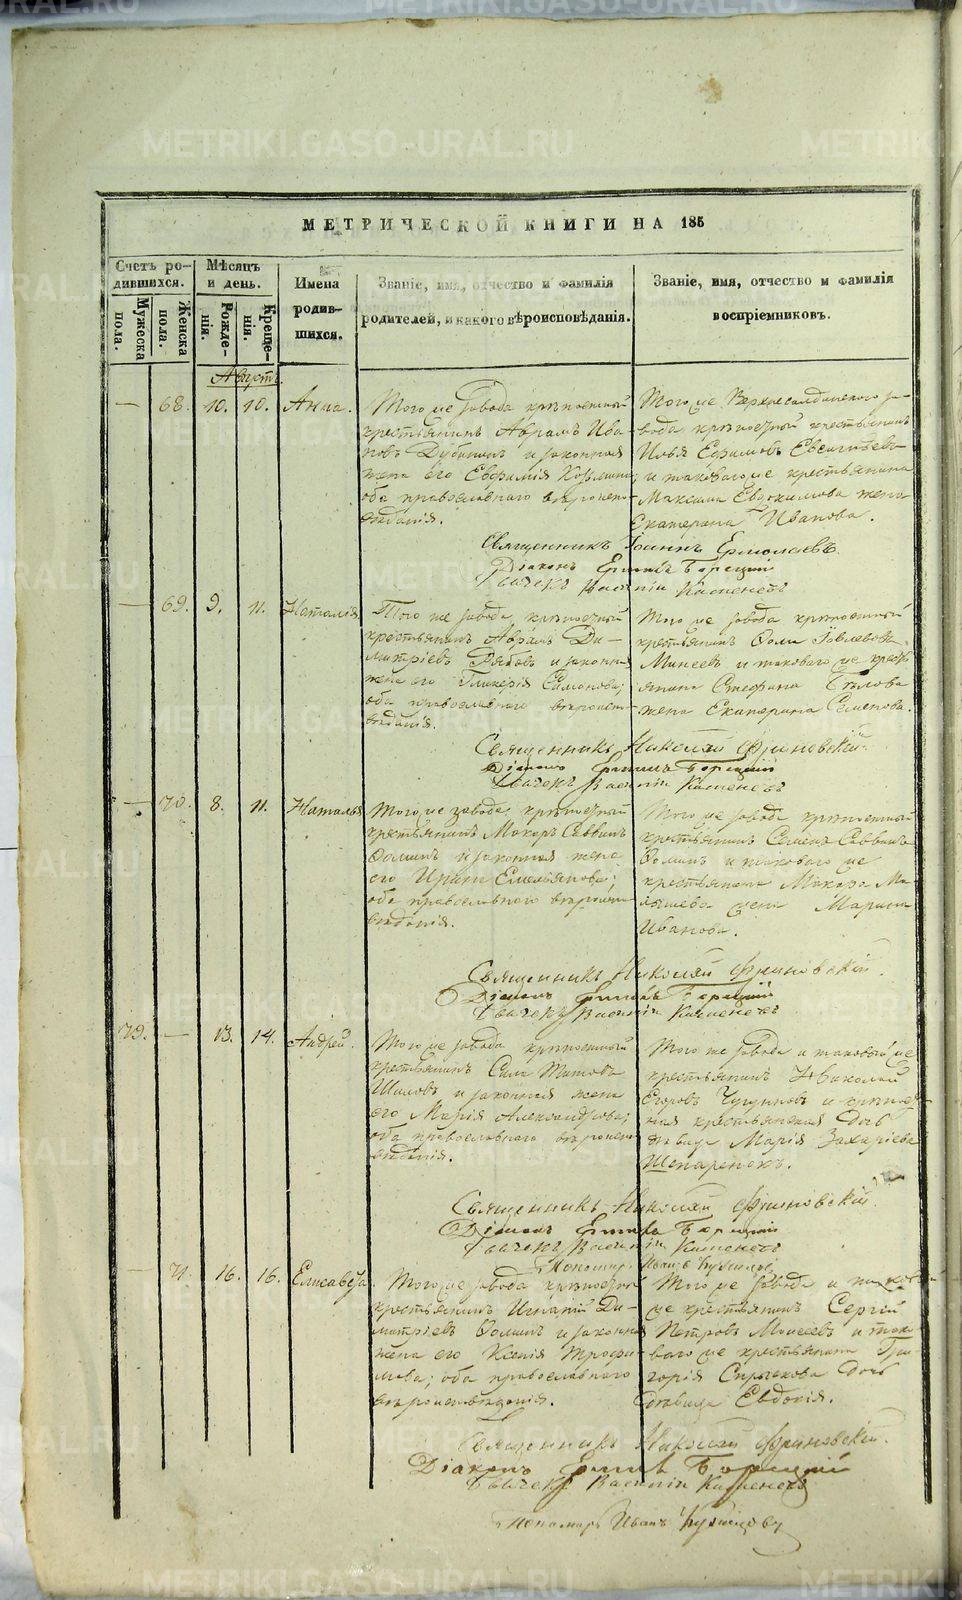 МЕТРИЧЕСКОЙ КНИГИ НА 185
Счетъ ро-
дившихся.
Мужеска
пола.
Женска
пола.
Мѣсяцъ
и день.
Рожде-
нія.
Креще-
нія.
Имена
родив-
шихся.
Званіе, имя, отчество и фамилія
родителей, и какого вѣроисповѣданія.
Званіе, имя, отчество и фамилія
воспріемниковъ.
Августъ.
— 68. 10. 10. Анна.
Того же завода крѣпостный
крестьянинъ Авраамъ Ива-
новъ Дубининъ и законная
жена его Евфимія
оба православнаго вѣроиспо-
вѣданія.
Того же Верхнесалдинскаго за-
вода крѣпостный крестьянинъ
Илья Ефимовъ
и таковаго же крестьянина
Максима Евдокимова жена
Екатерина Иванова.
Священникъ Іоаннъ Ермолаевъ
Діаконъ Борецкій
Дьячекъ Василій Каменевъ
— 69. 9. 11. Наталія
Того же завода крѣпостный
крестьянинъ Авраамъ Ди-
митріевъ Рябовъ и законная
жена его Гликерія Симонова;
оба православнаго вѣроиспо-
вѣданія.
Того же завода крѣпостный
крестьянинъ Фома
Минеевъ и таковаго же кресть-
янина Стефана Бѣлова
жена Екатерина Семенова.
Священникъ Николай Флоровскій.
Діаконъ Борецкій
Дьячекъ Василій Каменевъ
— 70. 8. 11. Наталья
Того же завода крѣпостный
крестьянинъ Макаръ Саввинъ
Фоминъ и законная жена
его Ирина Емельянова;
оба православнаго вѣроиспо-
вѣданія.
Того же завода крѣпостный
крестьянинъ Семенъ Саввинъ
Фоминъ и таковаго же
крестьянина Макара Ма-
лышева жена Марина
Иванова.
Священникъ Николай Флоровскій.
Діаконъ Борецкій
Дьячекъ Василій Каменевъ
79. — 13. 14. Андрей.
Того же завода крѣпостный
крестьянинъ Сила Титовъ
Шиловъ и законная жена
его Марія Александрова;
оба православнаго вѣроиспо-
вѣданія.
Того же завода и таковый же
крестьянинъ Николай
Егоровъ Чугуновъ и крѣпост-
ная крестьянская дочь
дѣвица Марія Захаріева
Священникъ Николай Флоровскій.
Діаконъ Борецкій
Дьячекъ Василій Каменевъ
Пономарь Иванъ
— 71. 16. 16. Елисавета
Того же завода крѣпостный
крестьянинъ Игнатій Ди-
митріевъ Фоминъ и законная
жена его Ксенія Трофи-
мова; оба православнаго
вѣроисповѣданія.
Того же завода и таковый
же крестьянинъ Сергій
Петровъ Моисеевъ и тако-
ваго же крестьянина Гри-
горія дочь
дѣвица Евдокія.
Священникъ Николай Флоровскій.
Діаконъ Борецкій
Дьячекъ Василій Каменевъ
Пономарь Иванъ
METRIKI.GASO-URAL.RU